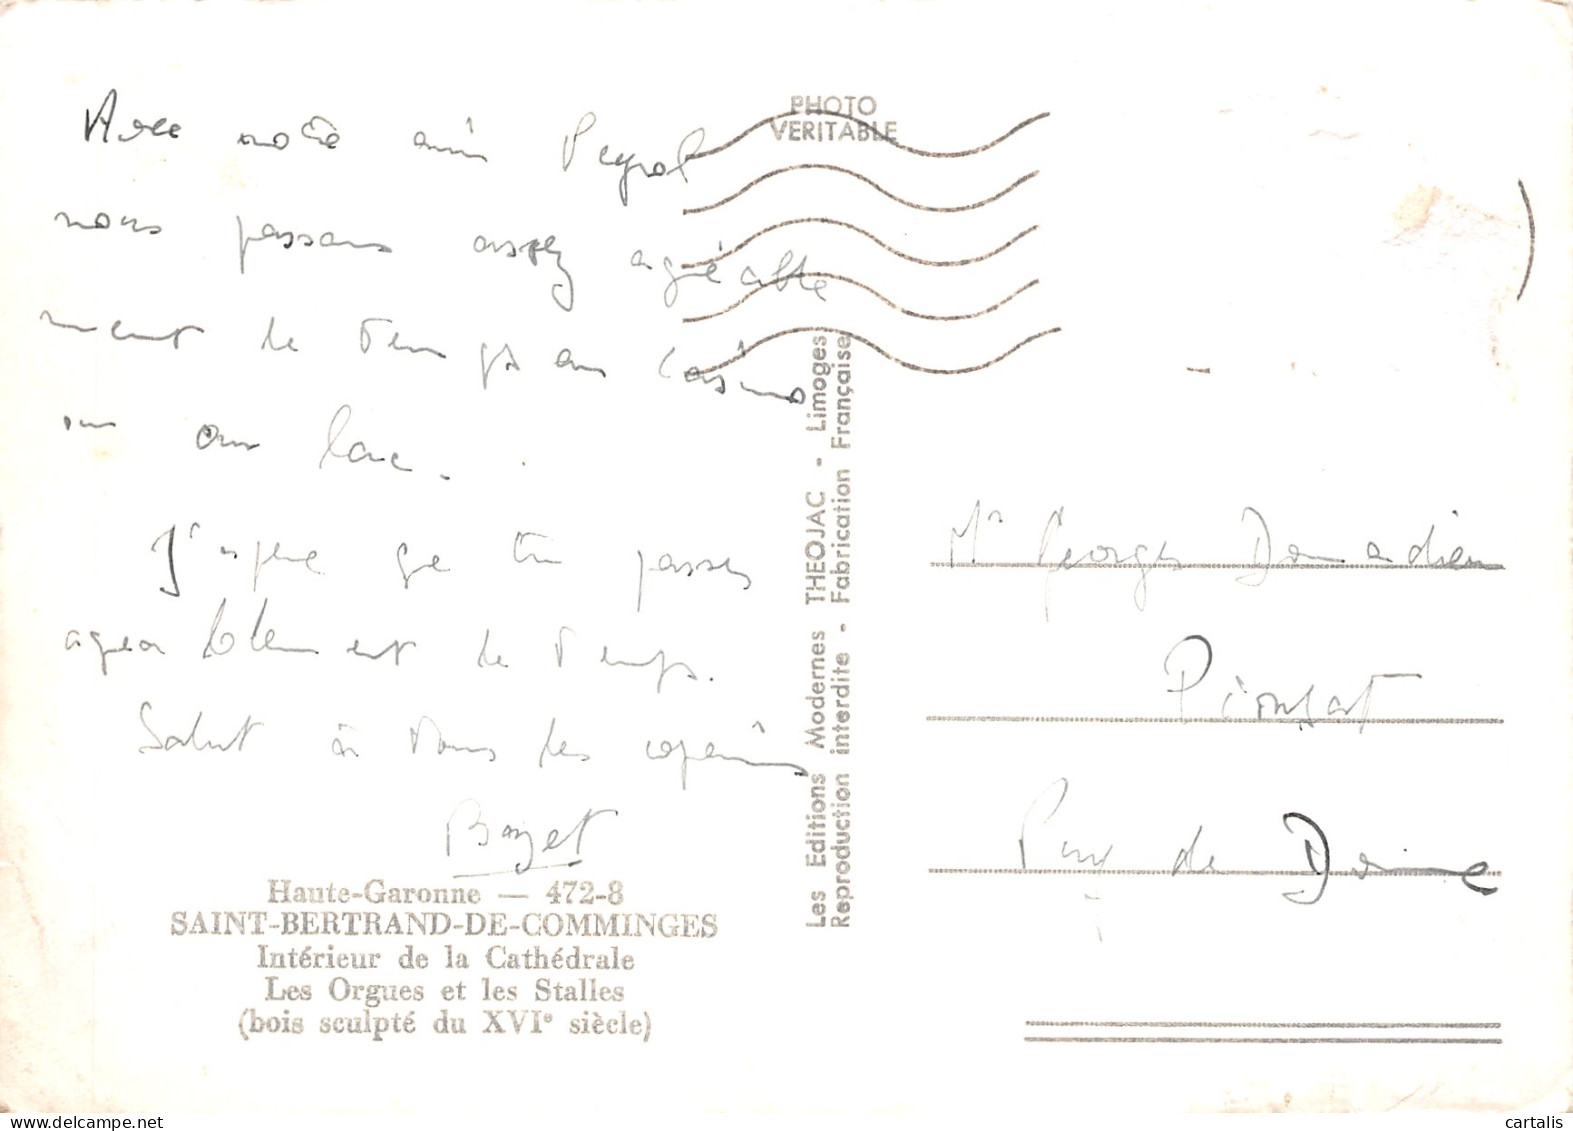 Avec notre ami Peyrol
nous passons assez agréable
ment le temps au Casino
ou au lac.
J'espère que tu passes
agreablement le temps.
Salut à tous les copains
Bazet
Haute-Garonne — 472-8
SAINT-BERTRAND-DE-COMMINGES
Intérieur de la Cathédrale
Les Orgues et les Stalles
(bois sculpté du XVIe siècle)
PHOTO
VERITABLE
Les Editions Modernes THEOJAC - Limoges
Reproduction interdite - Fabrication Française
Mr Georges Donnadieu
Pionsat
Puy de Dôme
cartalis